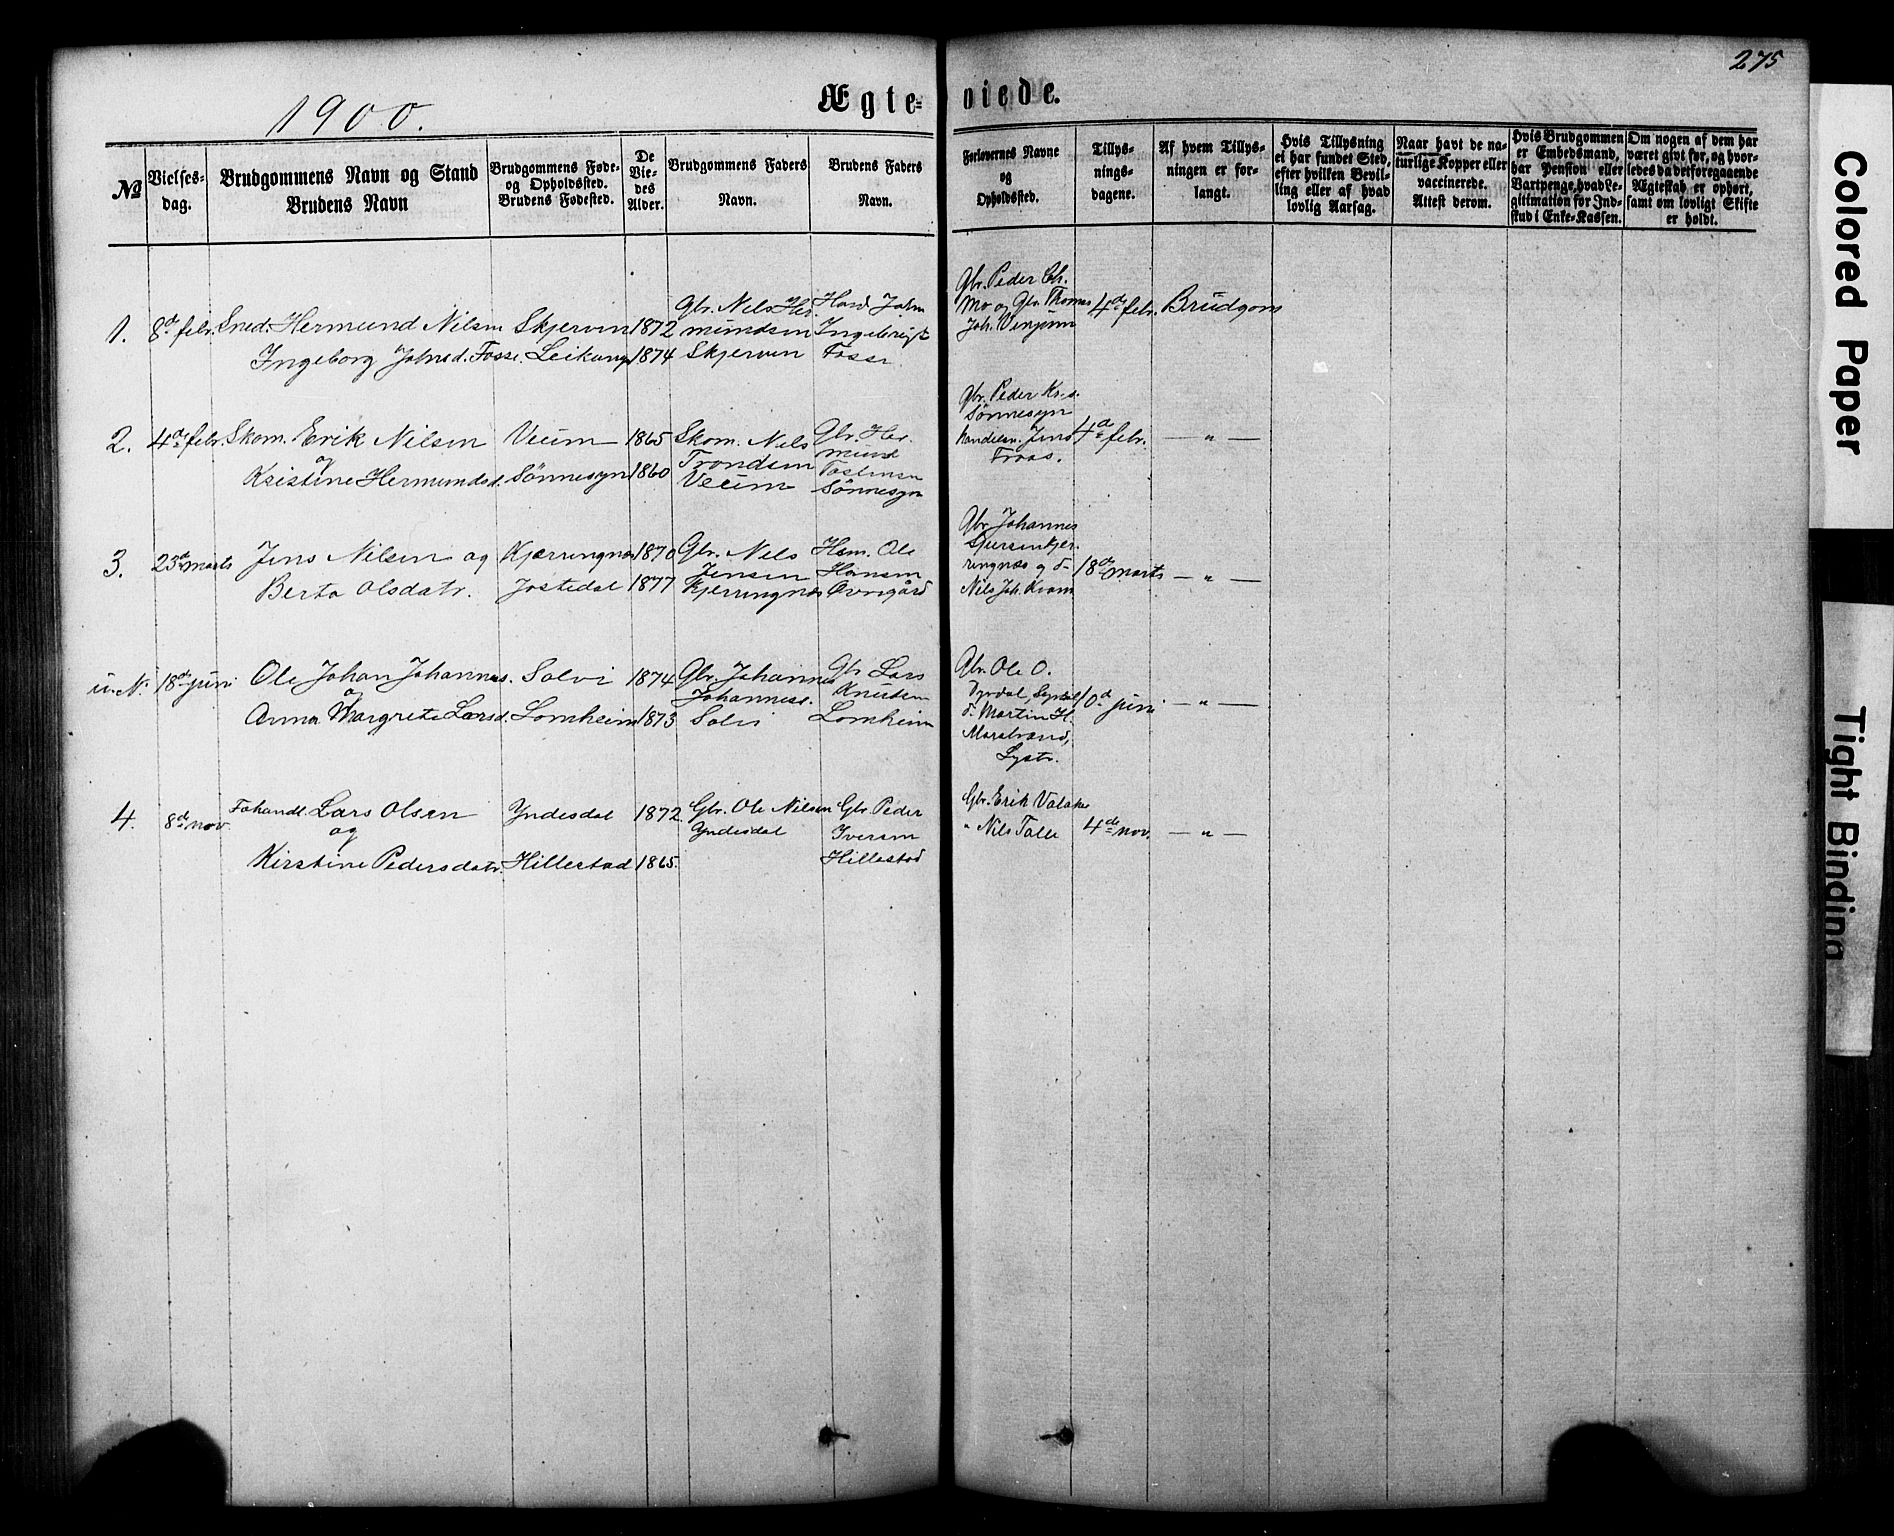 275
1900.
Ægte-viede.
No
Vielses-
dag.
Brudgommens Navn og Stand
Brudens Navn
Brudgommens Føde-
og Opholdssted.
Brudens Fødested.
De
Vie-
des
Alder.
Brudgommens Faders
Navn.
Brudens Faders
Navn.
Forlovernes Navne
og
Opholdssted.
Tillys-
nings-
dagene.
Af hvem Tillys-
ningen er for-
langt.
Hvis Tillysning
ei har fundet Sted,
efter hvilken Bevil-
ling eller af hvad
lovlig Aarsag.
Naar havt de na-
turlige Kopper eller
vaccinerede.
Attest derom.
Hvis Brudgommen
er Embedsmand,
har Pension eller
Vartpenge, hvad Le-
gitimation for Ind-
skud i Enke-Kassen.
Om nogen af dem har
været gift før, og hvor-
ledes da det foregaaende
Ægteskab er ophørt,
samt om lovligt Skifte
er holdt.
1.
8de febr.
Sned. Hermund Nilsen
Ingeborg Johnsd. Fosse.
Skjerven
Leikanger
1872
1874
Gbr. Nels Her
mundsen
Skjerven
John
Ingebrigt
Fosse
Gbr. Peder Ch.
Mo og Gbr. Thomas
Joh. Venjum
4de febr.
Brudgom
2.
4de febr.
Skom. Erik Nilsen
og
Kristine Hermundsd.
Veum
Sönnesyn
1865
1860
Skom. Nels
Trondsen
Veum
Gbr. Her
mund
Sönnesyn
Gbr. Peder Kr.s.
Sönnesyn
Handelsm. Jens
4de febr.
— " —
3.
23de marts
Jens Nilsen og
Berta Olsdatr.
Kjærringnæs
Jostedal
1870
1877
Gbr. Nels
Jensen
Kjerringnæs
Hsm. Ole
Hansen
Gbr. Johannes
Sjursen Kjer-
ringnæs og do
Nils Joh. Kvam
18de marts
— " —
u. N.
18de juni
Ole Johan Johannes.
og
Anna Margrete Larsd.
Solvi
Lomheim
1874
1873
Gbr. Johannes
Johanness.
Solvi
Gbr. Lars
Knutsen
Lomheim
Gbr. Ole O.
do Martin H.
Lystr.
10de juni
— " —
4.
8de nov.
Lars Olsen
og
Kirstine Pedersdatr.
Yndesdal
Hillestad
1872
1865.
Gbr. Ole Nilsen
Yndesdal
Gbr. Peder
Iversen
Hillestad
Gbr. Erik Valaker
" Nils Talle
4de nov.
— " —
Colored Paper
Tight Binding